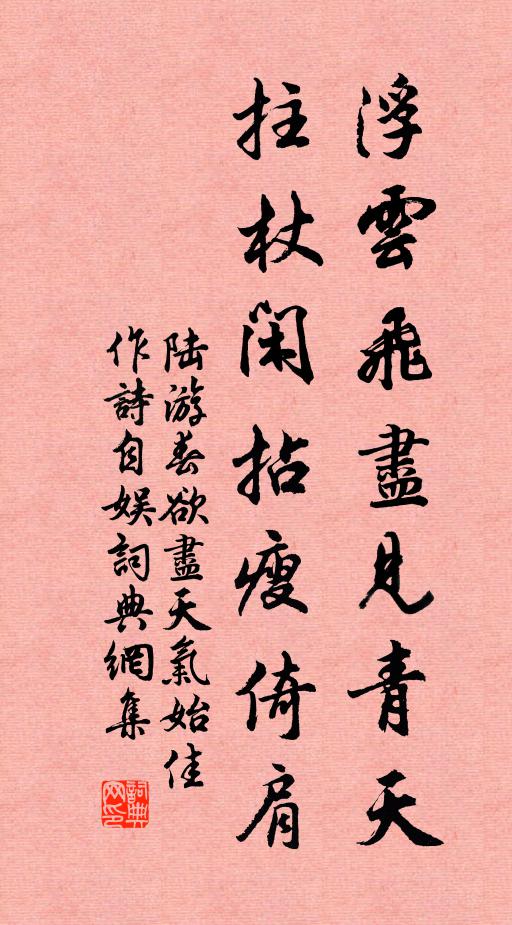 浮雲飛盡見青天
拄杖閑拈瘦倚肩
陸游春欲盡天氣始佳
作詩自娱詞典網集
詞典
网印